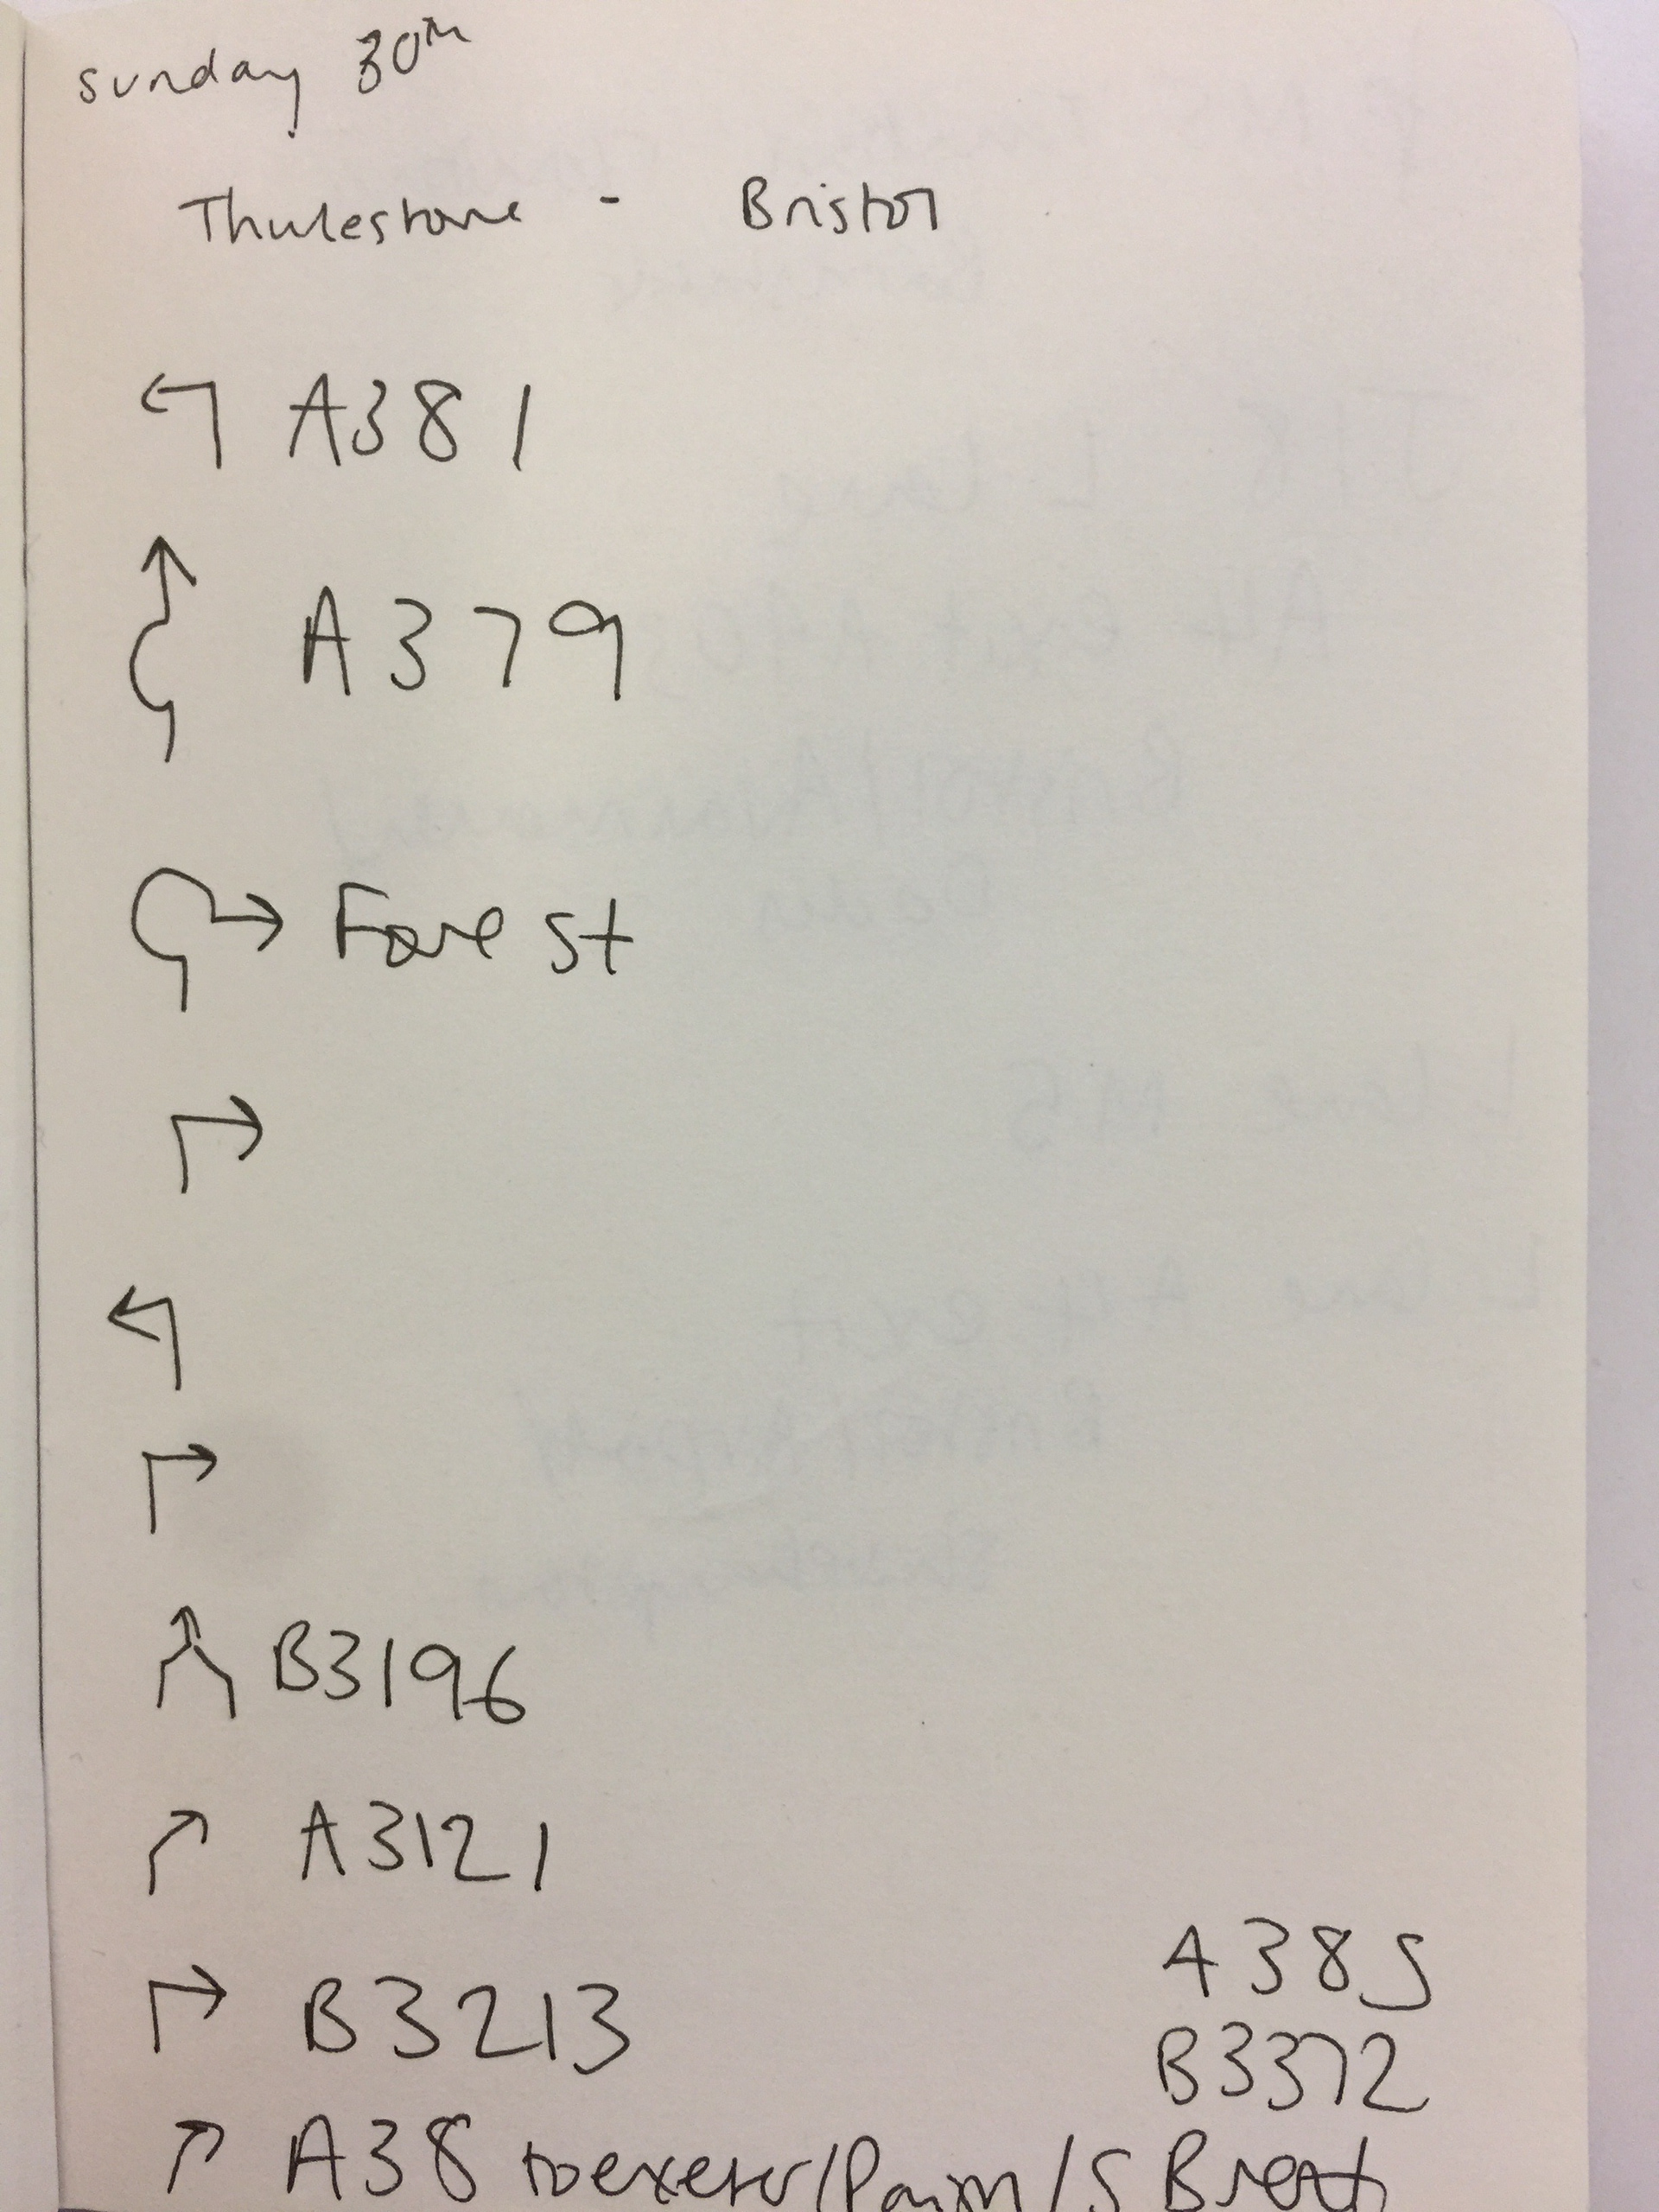 sunday 30th
Thurlestone - Bristol
A381
A379
Fore st
B3196
A3121
B3213
A385
B3372
A38 to exeter/Paim/S Brent